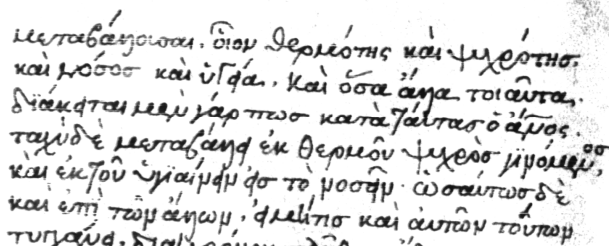 μεταβάλλουσαι. οἷον θερμότης καὶ ψυχρότης.
καὶ νόσος καὶ ὑγίεια. καὶ ὅσα ἄλλα τοιαῦτα.
διάκειται μὲν γάρ πως κατὰ ταύτας ὁ ἄνος.
ταχὺ δὲ μεταβάλλει ἐκ θερμοῦ ψυχρὸς γινόμενος,
καὶ ἐκ τοῦ ὑγιαίνειν εἰς τὸ νοσεῖν. ὡσαύτως δὲ
καὶ ἐπὶ τῶν ἄλλων. εἰ μή τις καὶ αὐτῶν τούτων
τυγχάνει. διὰ